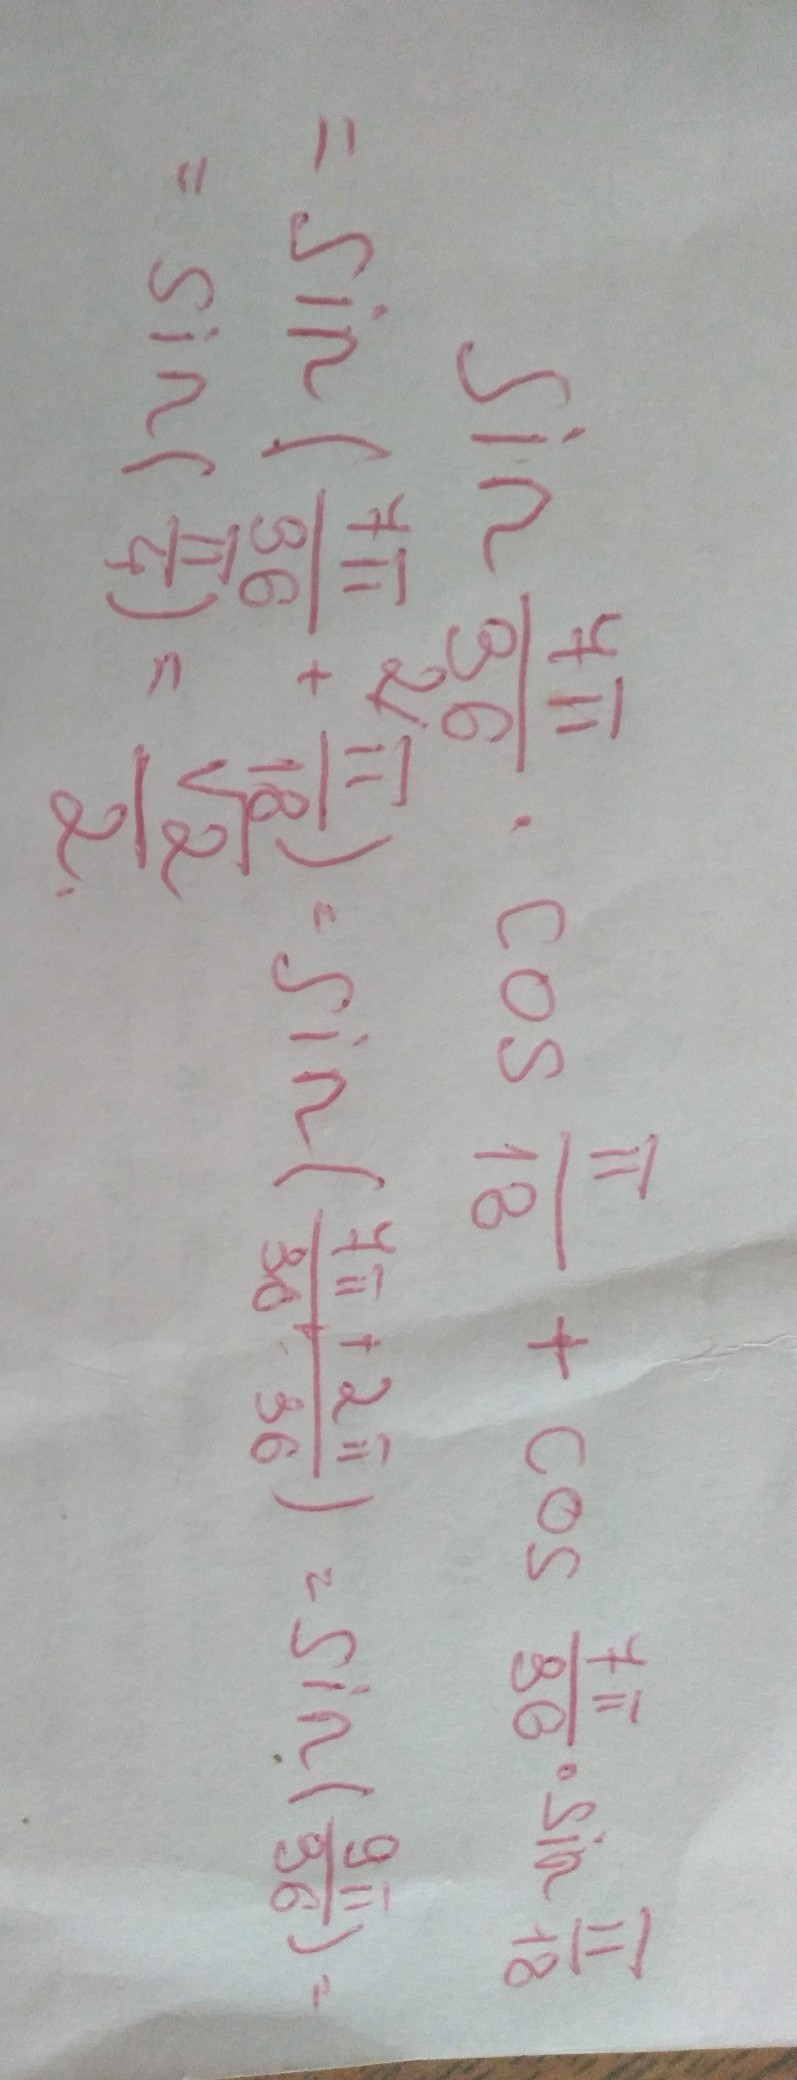 sin 7π/36 · cos π/18 + cos 7π/36 · sin π/18
= sin(7π/36 + 2\π/18) = sin(7π/36 + 2π/36) = sin(9π/36) =
= sin(π/4) = √2/2.